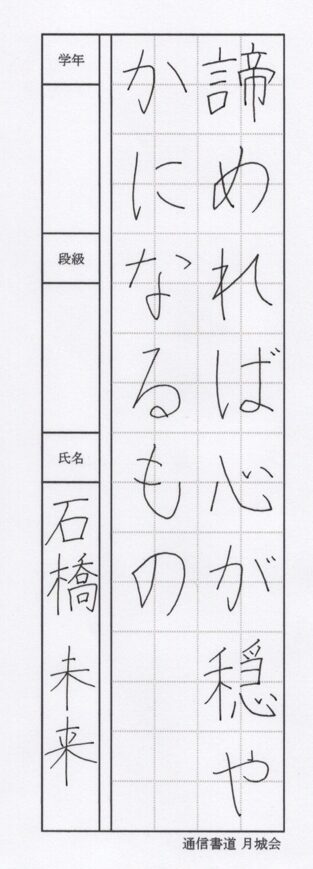 諦めれば心が穏や
かになるもの
学年
段級
氏名
石橋 未来
通信書道 月城会